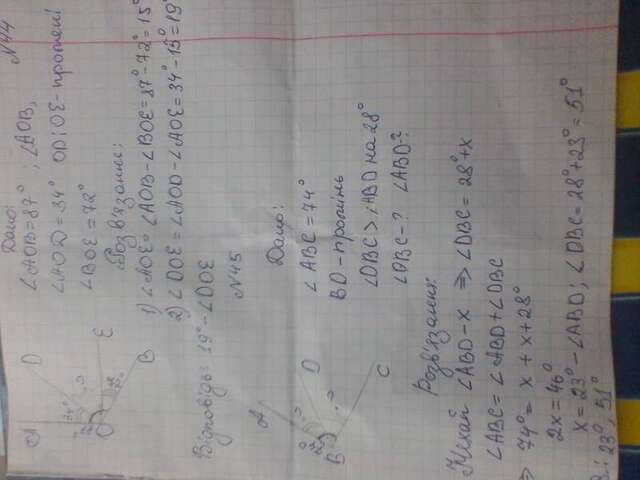 Дано: N44
∠AOB=87° ; ∠AOB,
∠AOD=34° OD і OE-промені
∠BOE=72°
Розв'язання:
1) ∠AOE=∠AOB-∠BOE=87°-72°=15°
2) ∠DOE=∠AOD-∠AOE=34°-15°=19°
Відповідь: 19°-∠DOE
A D
87° 34° ?
O E
72°
B
N45
Дано:
∠ABC=74°
BD-промінь
∠DBC>∠ABD на 28°
∠DBC-? ∠ABD-?
A
74° ?
B D
?
C
Розв'язання:
Нехай ∠ABD-x ⇒ ∠DBC=28°+x
∠ABC=∠ABD+∠DBC
⇒ 74°=x+x+28°
2x=46°
x=23°-∠ABD; ∠DBC=28°+23°=51°
В.: 23°, 51°